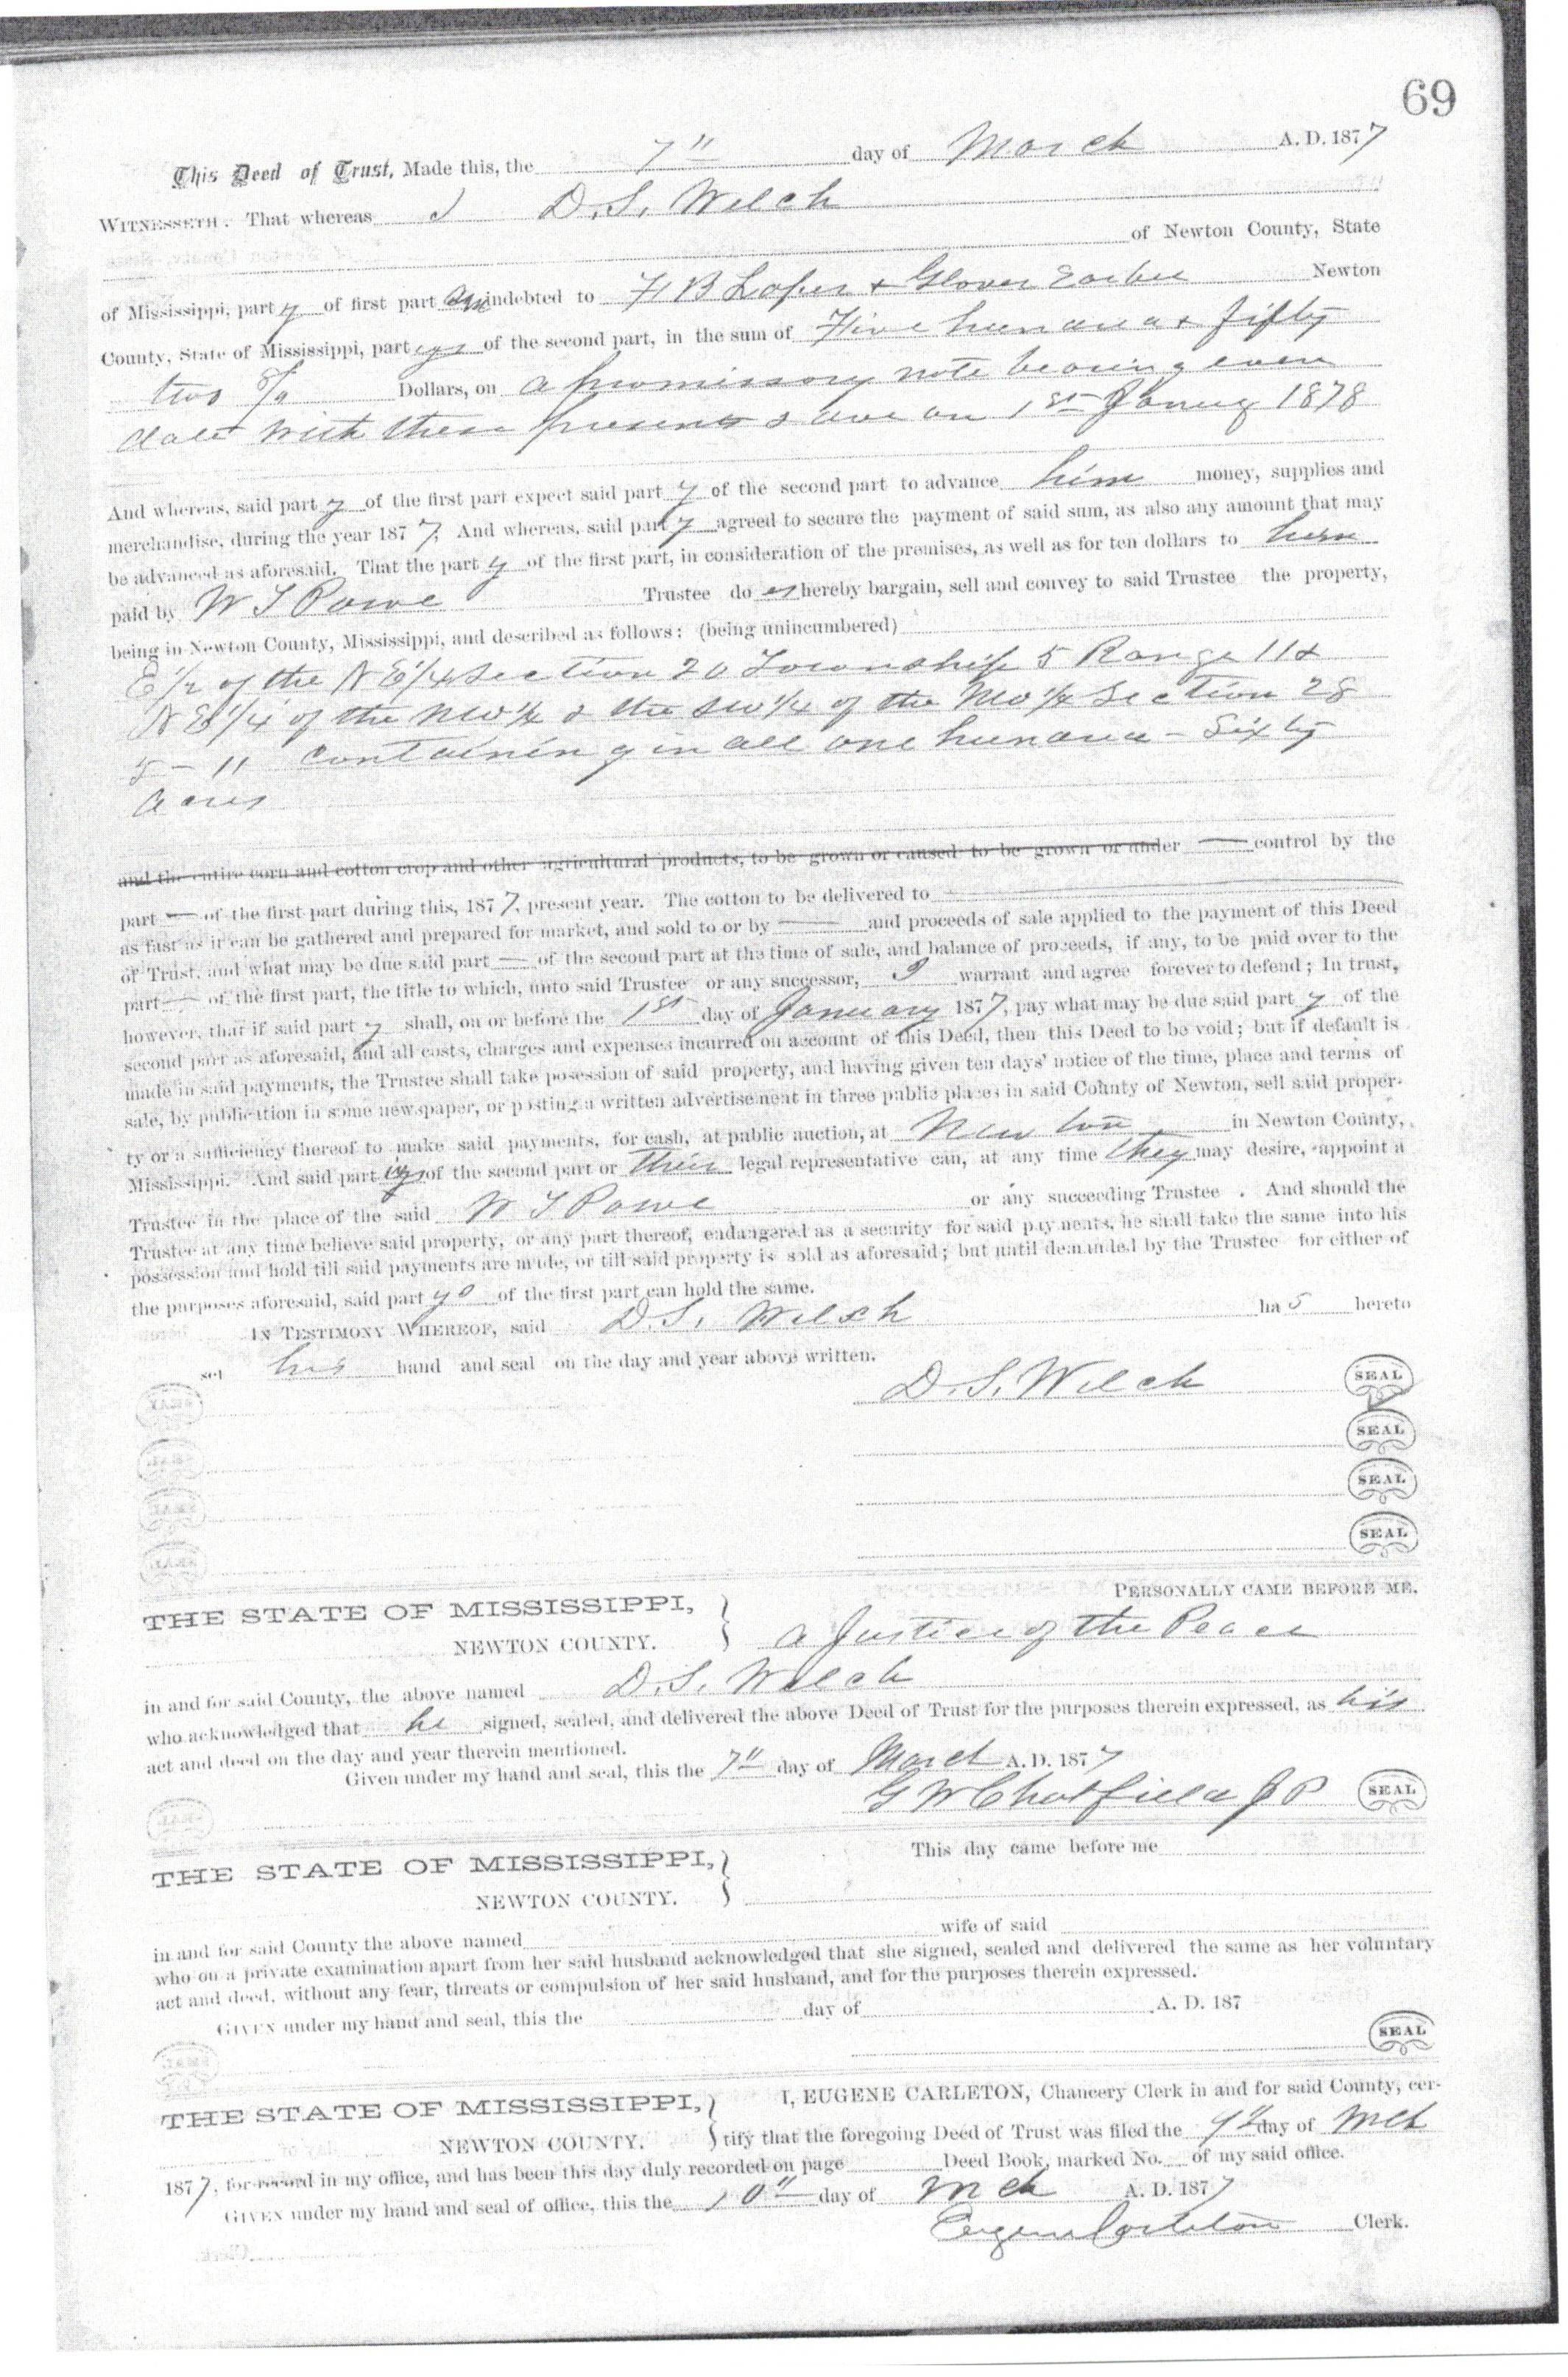 69
This Deed of Trust, Made this, the 7" day of March A. D. 1877
WITNESSETH. That whereas I D. S. Welch
of Newton County, State
of Mississippi, party of first part am indebted to F B Loper & Glover Newton
County, State of Mississippi, partys of the second part, in the sum of Five hundred & fifty
two Dollars, on a promissory note bearing even
date with these presents & due on 1st January 1878
And whereas, said party of the first part expect said party of the second part to advance him money, supplies and
merchandise, during the year 1877, And whereas, said party agreed to secure the payment of said sum, as also any amount that may
be advanced as aforesaid. That the party of the first part, in consideration of the premises, as well as for ten dollars to him
paid by W T Powe Trustee does hereby bargain, sell and convey to said Trustee the property,
being in Newton County, Mississippi, and described as follows: (being unincumbered)
E 1/2 of the N E 1/4 Section 20 Township 5 Range 11 &
N E 1/4 of the NW 1/4 & the SW 1/4 of the NW 1/4 Section 28
5 - 11 containing in all one hundred - Sixty
Acres
and the entire corn and cotton crop and other agricultural products, to be grown or caused to be grown or under — control by the
part — of the first part during this, 1877, present year. The cotton to be delivered to —
as fast as it can be gathered and prepared for market, and sold to or by — and proceeds of sale applied to the payment of this Deed
of Trust, and what may be due said part — of the second part at the time of sale, and balance of proceeds, if any, to be paid over to the
part — of the first part, the title to which, unto said Trustee or any successor, I warrant and agree forever to defend; In trust,
however, that if said party shall, on or before the 1st day of January 1877, pay what may be due said party of the
second part as aforesaid, and all costs, charges and expenses incurred on account of this Deed, then this Deed to be void; but if default is
made in said payments, the Trustee shall take posession of said property, and having given ten days' notice of the time, place and terms of
sale, by publication in some newspaper, or posting a written advertisement in three public places in said County of Newton, sell said proper-
ty or a sufficiency thereof to make said payments, for cash, at public auction, at Newton in Newton County,
Mississippi. And said partys of the second part or their legal representative can, at any time they may desire, appoint a
Trustee in the place of the said W T Powe or any succeeding Trustee . And should the
Trustee at any time believe said property, or any part thereof, endangered as a security for said payments, he shall take the same into his
possession and hold till said payments are made, or till said property is sold as aforesaid; but until demanded by the Trustee for either of
the purposes aforesaid, said party of the first part can hold the same.
IN TESTIMONY WHEREOF, said D. S. Welch has hereto
set his hand and seal on the day and year above written.
D. S. Welch SEAL
SEAL
SEAL
SEAL
PERSONALLY CAME BEFORE ME,
THE STATE OF MISSISSIPPI,
NEWTON COUNTY. a Justice of the Peace
in and for said County, the above named D. S. Welch
who acknowledged that he signed, sealed, and delivered the above Deed of Trust for the purposes therein expressed, as his
act and deed on the day and year therein mentioned.
Given under my hand and seal, this the 7" day of March A. D. 1877
G W Chatfield J P SEAL
This day came before me
THE STATE OF MISSISSIPPI,
NEWTON COUNTY.
in and for said County the above named wife of said
who on a private examination apart from her said husband acknowledged that she signed, sealed and delivered the same as her voluntary
act and deed, without any fear, threats or compulsion of her said husband, and for the purposes therein expressed.
GIVEN under my hand and seal, this the day of A. D. 187
SEAL
I, EUGENE CARLETON, Chancery Clerk in and for said County, cer-
THE STATE OF MISSISSIPPI,
NEWTON COUNTY. tify that the foregoing Deed of Trust was filed the day of Mch
1877, for record in my office, and has been this day duly recorded on page Deed Book, marked No. of my said office.
GIVEN under my hand and seal of office, this the 10" day of Mch A. D. 1877
Eugene Carleton Clerk.